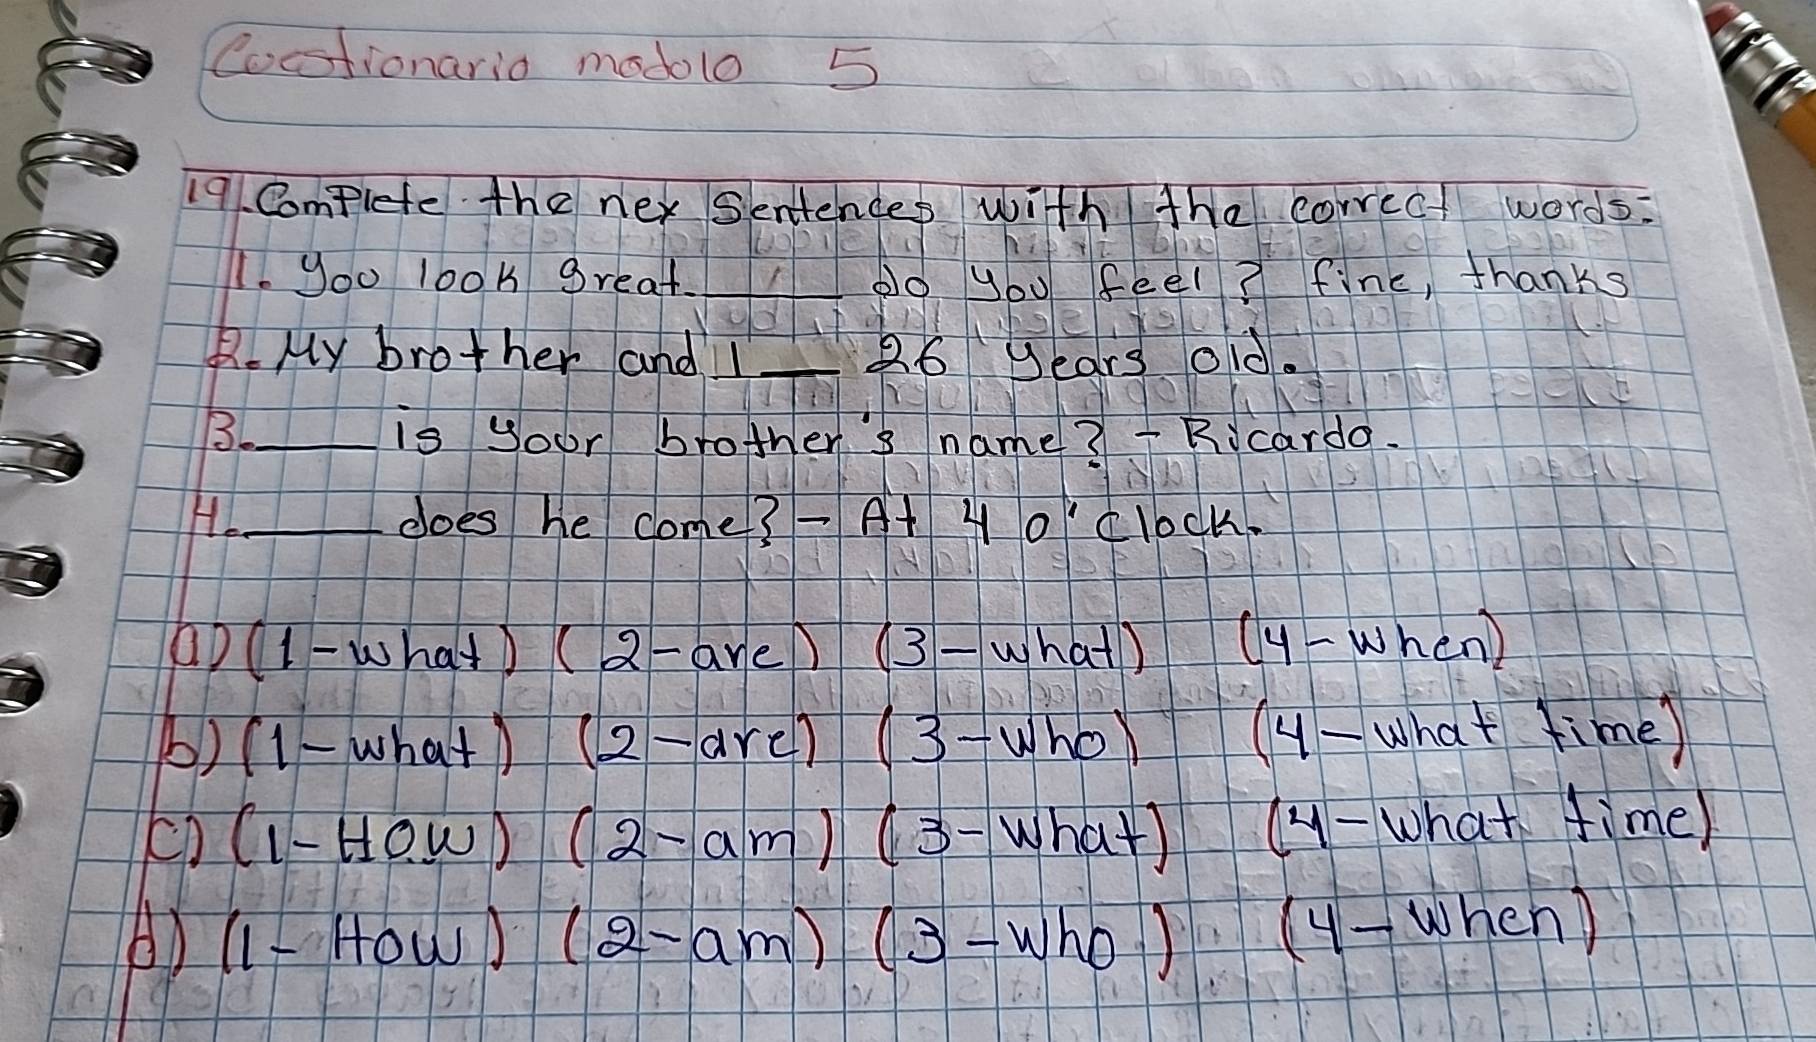 Cuestionario modolo 5
19. Complete the nex Sentences with the correct words:
1. you look great. ____ do you feel? fine, thanks
2. My brother and I ___ 26 years old.
3. ____ is your brother's name? - Ricardo.
4. ____ does he come? - At 4 o'clock.
a) (1-what) (2-are) (3-what) (4-when)
b) (1-what) (2-are) (3-who) (4-what time)
c) (1-HOW) (2-am) (3-what) (4-what time)
d) (1-How) (2-am) (3-who) (4-when)